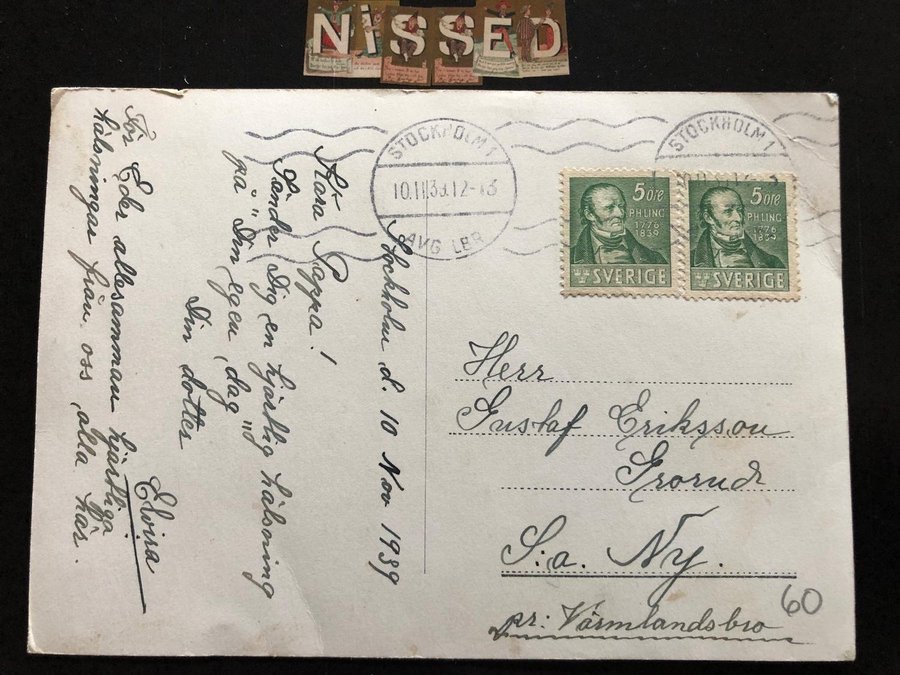 NISSED
STOCKHOLM 1
AVG LBR
STOCKHOLM 1
5 ÖRE
P.H.LING
1776
1839
SVERIGE
5 ÖRE
P.H.LING
1776
1839
SVERIGE
Stockholm d. 10 Nov 1939
Kära Pappa!
Sänder Dig en hjärtlig hälsning
på "Din egen dag"
Din dotter
Elvira
För Eder allesamman hjärtliga
hälsningar från oss alla här.
Herr
Gustaf Eriksson
Grorud
S:a. Ny.
pr: Värmlandsbro
60